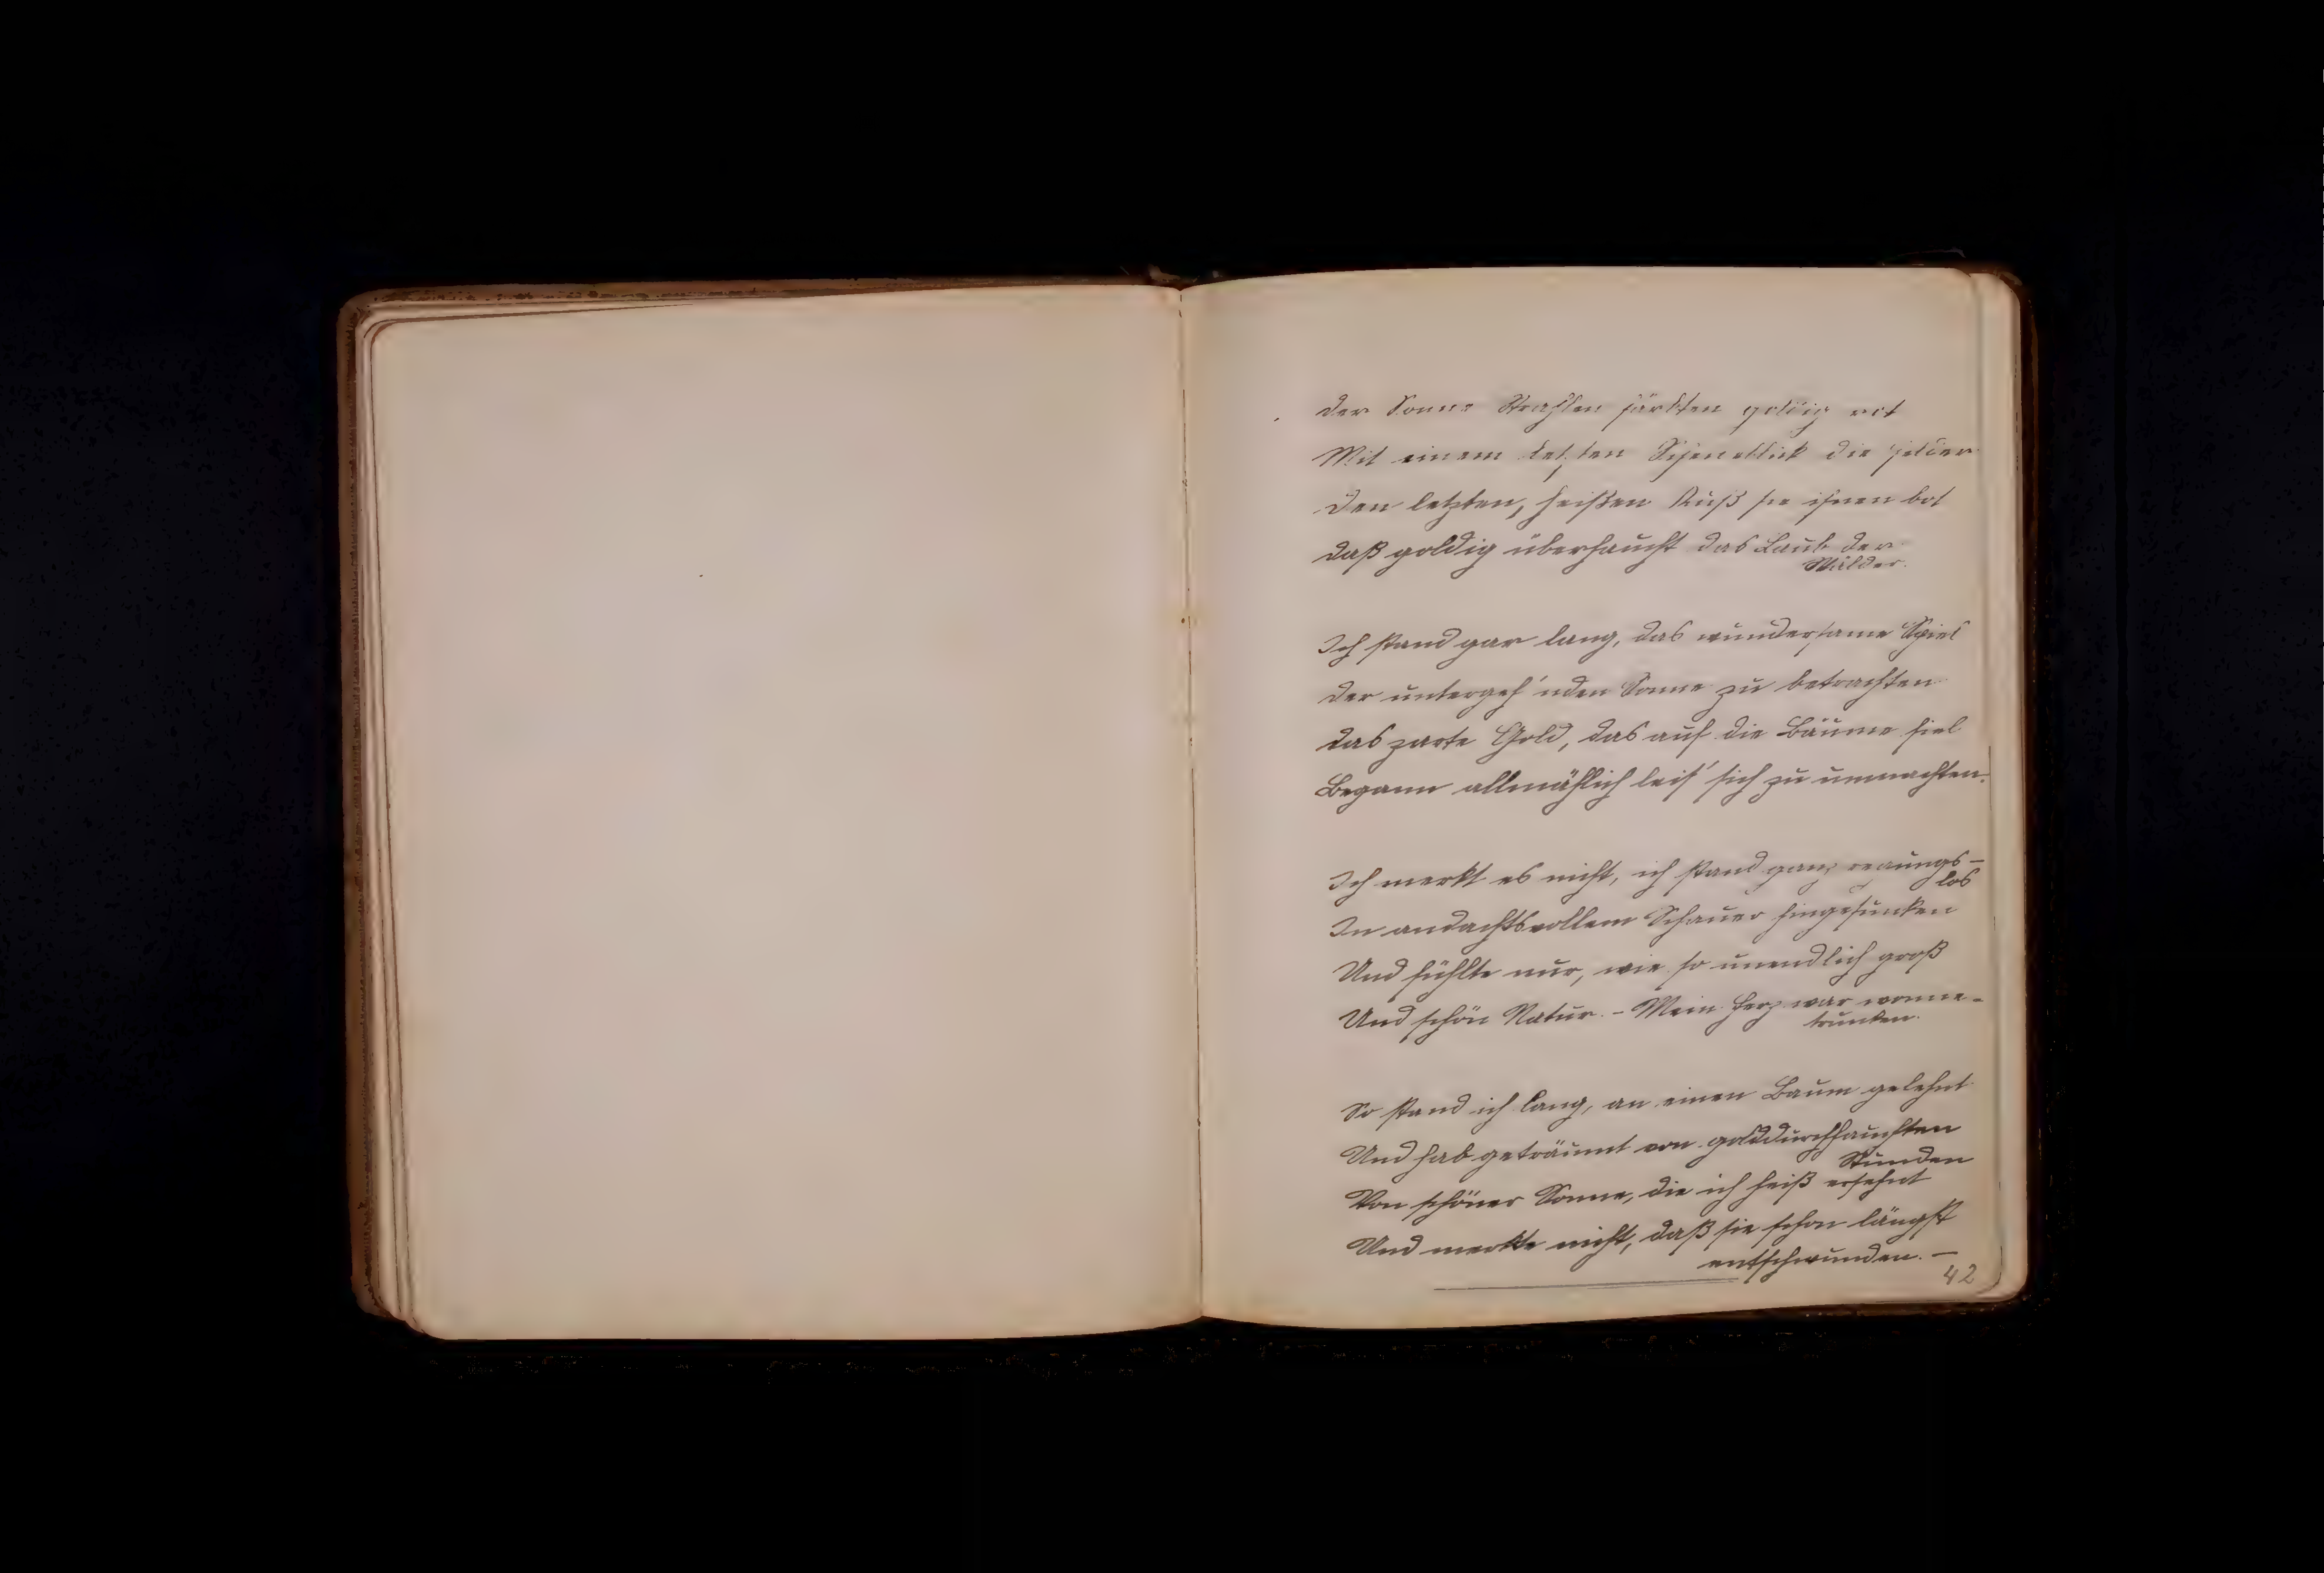 Der Sonne Strahlen färbten goldig rot
Mit einem letzten Scheideblick die Felder
Den letzten, heißen Kuß sie ihnen bot
Daß goldig überhaucht das Laub der
Wälder.
Ich stand gar lang, das wundersame Spiel
Der untergeh'nden Sonne zu betrachten
Das zarte Gold, das auf die Bäume fiel
Begann allmählich leis' sich zu umnachten.
Ich merkt es nicht, ich stand ganz regungs-
los
In andachtsvollem Schauer hingesunken
Und fühlte nur, wie so unendlich groß
Und schön Natur. - Mein Herz war wonne-
trunken.
So stand ich lang, an einen Baum gelehnt
Und hab geträumt von golddurchhauchten
Stunden
Von schöner Sonne, die ich heiß ersehnt
Und merkte nicht, daß sie schon längst
entschwunden. —
42